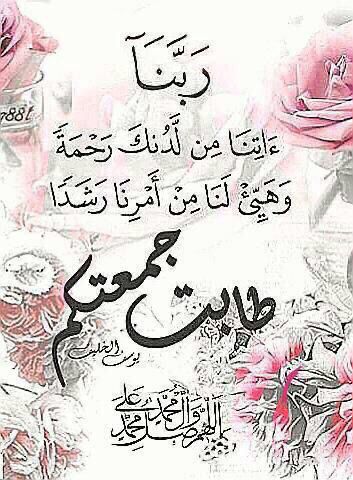 رَبَّنَآ
ءَاتِنَا مِن لَّدُنكَ رَحْمَةً
وَهَيِّئْ لَنَا مِنْ أَمْرِنَا رَشَدًا
طابت جمعتكم
يوسف الخليف
اللهم صل على محمد وآل محمد
788t